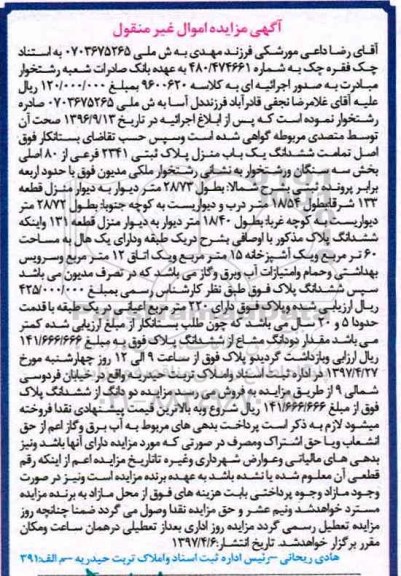 آگهی مزایده اموال غیر منقول
آقای رضا داعی مورشکی فرزند مهدی به ش ملی ۰۷۰۳۶۷۵۲۶۵ به استناد
چک فقره چک به شماره ۴۸۰/۴۷۴۶۶۱ به عهده بانک صادرات شعبه رشتخوار
مبادرت به صدور اجرائیه ای به کلاسه ۹۶۰۰۶۲۰ بمبلغ ۱۲۰/۰۰۰/۰۰۰ ریال
علیه آقای غلامرضا نجفی قادرآباد فرزندل آسا به ش ملی ۰۷۰۳۶۷۵۲۶۵ صادره
رشتخوار نموده است که پس از ابلاغ اجرائیه در تاریخ ۱۳۹۶/۹/۱۳ صحت آن
توسط متصدی مربوطه گواهی شده است وسپس حسب تقاضای بستانکار فوق
اصل تمامت ششدانگ یک باب منزل پلاک ثبتی ۲۳۴۱ فرعی از ۸۰ اصلی
بخش سه سنگان ورشتخوار به نشانی رشتخوار ملکی مدیون فوق با حدود اربعه
برابر پرونده ثبتی بشرح شمالا: بطول ۲۸۷۳ متر دیوار به دیوار منزل قطعه
۱۳۳ شرقابطول ۱۸۵۴ متر درب و دیواریست به کوچه جنوبا: بطول ۲۸۷۲ متر
دیواریست به کوچه غربا: بطول ۱۸۴۰ متر دیوار به دیوار منزل قطعه ۱۳۱ واینکه
ششدانگ پلاک مذکور با اوصافی بشرح دریک طبقه ودارای یک هال به مساحت
۶۰ تر مربع ویک آشپزخانه ۱۵ متر مربع ویک اتاق ۱۲ متر مربع وسرویس
بهداشتی وحمام وامتیازات آب وبرق وگاز می باشد که در تصرف مدیون می باشد
سپس ششدانگ پلاک فوق طبق نظر کارشناس رسمی بمبلغ ۴۲۵/۰۰۰/۰۰۰
ریال ارزیابی شده وپلاک فوق دارای ۲۲۰ متر مربع اعیانی در یک طبقه با قدمت
حدودا ۵ و ۲۰ سال می باشد که چون طلب بستانکار از مبلغ ارزیابی شده کمتر
می باشد مقدار دودانگ مشاع از ششدانگ پلاک فوق به مبلغ ۱۴۱/۶۶۶/۶۶۶
ریال ارزابی وبازداشت گردیدو پلاک فوق از ساعت ۹ الی ۱۲ روز چهارشنبه مورخ
۱۳۹۷/۴/۲۷ در اداره ثبت اسناد واملاک تربت حیدریه واقع در خیابان فردوسی
شمالی ۹ از طریق مزایده به فروش میرسد مزایده دو دانگ از ششدانگ پلاک
فوق از مبلغ ۱۴۱/۶۶۶/۶۶۶ ریال شروع وبه بالاترین قیمت پیشنهادی نقدا فروخته
میشود لازم به ذکر است پرداخت بدهی های مربوط به آب برق وگاز اعم از حق
انشعاب ویا حق اشتراک ومصرف در صورتی که مورد مزایده دارای آنها باشد ونیز
بدهی های مالیاتی وعوارض شهرداری وغیره تاتاریخ مزایده اعم از اینکه رقم
قطعی آن معلوم شده یا نشده باشد به عهده برنده مزایده است ونیز در صورت
وجود مازاد وجوه پرداختی بابت هزینه های فوق از محل مازاد به برنده مزایده
مسترد خواهدشد ونیم عشر و حق مزایده نقدا وصول می گردد ضمنا چنانچه روز
مزایده تعطیل رسمی گردد مزایده روز اداری بعداز تعطیلی درهمان ساعت ومکان
مقرر برگزار خواهدشد. تاریخ انتشار: ۱۳۹۷/۴/۶
هادی ریحانی –رئیس اداره ثبت اسناد واملاک تربت حیدریه –م الف: ۳۹۱